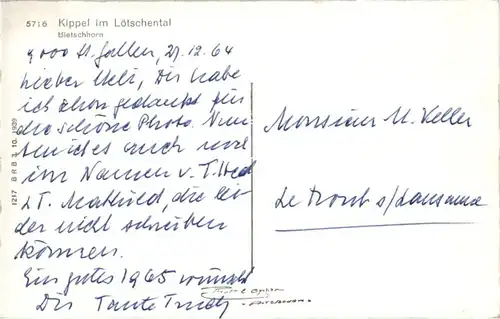 5716 Kippel im Lötschental
Bietschhorn
9000 St. Gallen, 27.12.64
Lieber Ueli, Dir habe
ich schon gedankt für
die schöne Photo. Nun
tu ich es auch noch
im Namen v. T. Hed
& T. Mathild, die lei-
der nicht schreiben
können.
Ein gutes 1965 wünscht
Dir Tante Trudy
Monsieur U. Keller
Le Mont s/Lausanne
1217 BRB 3. 10. 1939